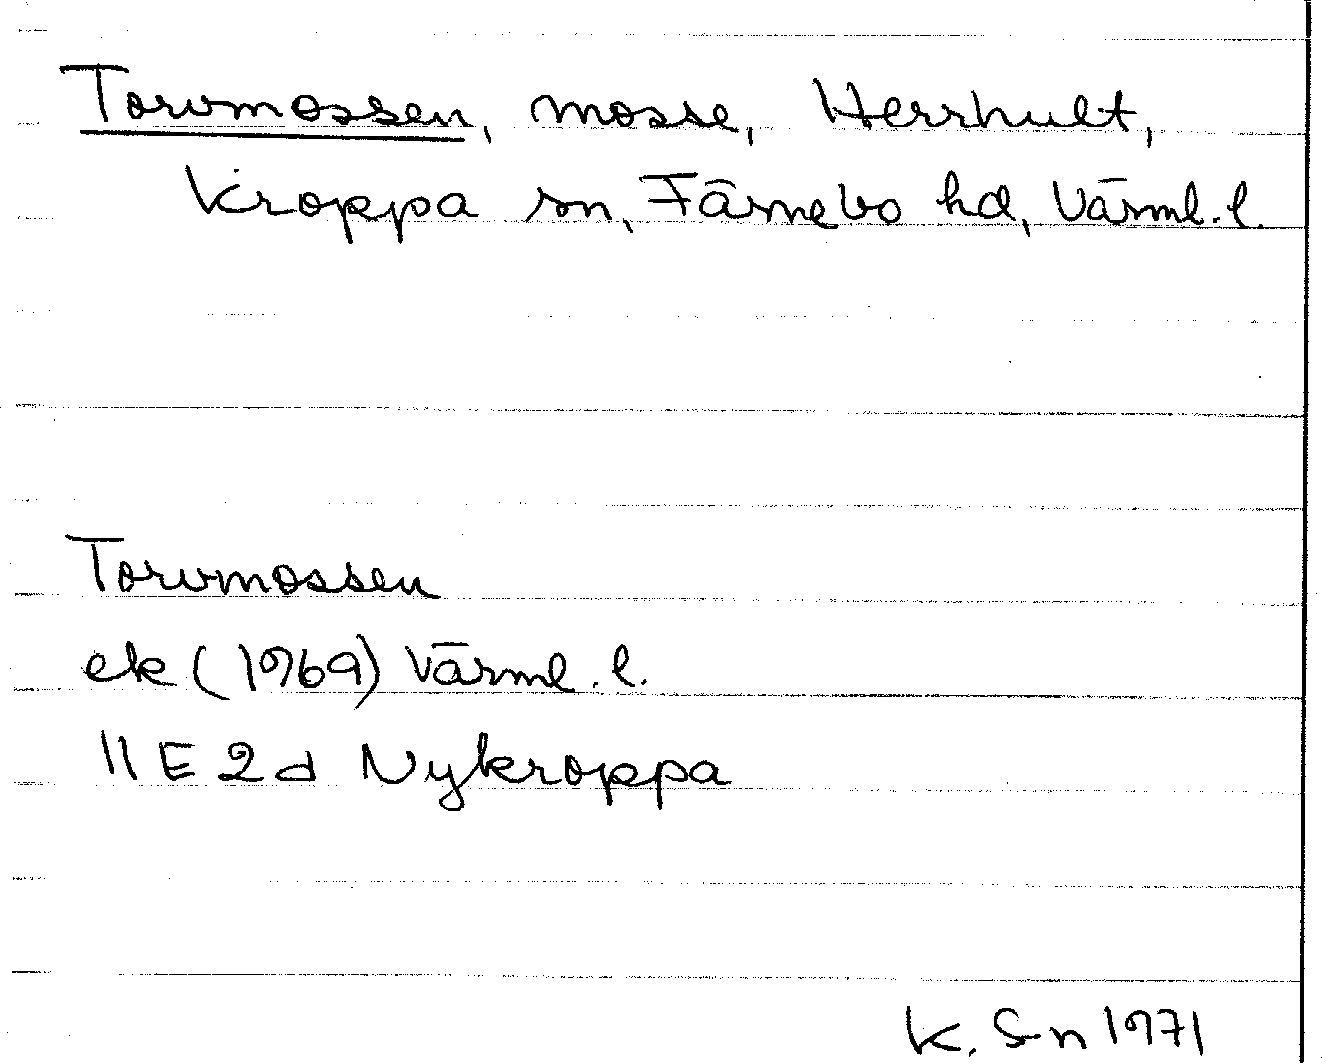 Torvmossen, mosse, Herrhult,
Kroppa sn, Färnebo hd, Värml. l.
Torvmossen
ek (1969) Värml. l.
11 E 2 d Nykroppa
K. S-n 1971